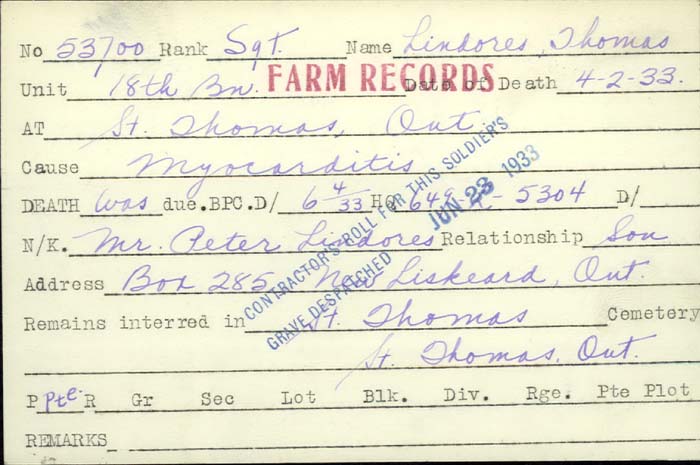 No 53700 Rank Sgt. Name Lindores, Thomas
Unit 18th Bn. FARM RECORDS Date of Death 4-2-33.
AT St. Thomas, Ont.
Cause Myocarditis
DEATH was due.BPC.D/ 6 4/33 HQ 649 - 5304 D/
N/K. Mr. Peter Lindores Relationship Son
Address Box 285 New Liskeard, Ont.
Remains interred in St. Thomas Cemetery
St. Thomas, Ont.
P Pte. R Gr Sec Lot Blk. Div. Rge. Pte Plot
REMARKS
CONTRACTOR'S ROLL FOR THIS SOLDIER'S
GRAVE DESPATCHED JUN 23 1933